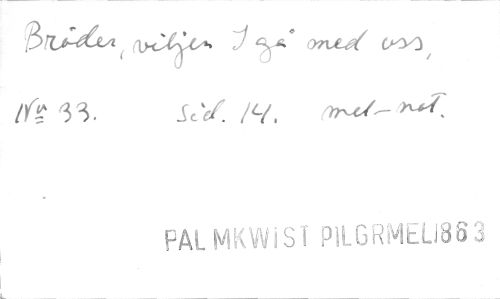 Bröder, viljen I gå med oss,
No 33. sid. 14. mel-not.
PALMKWIST PILGRMEL1863